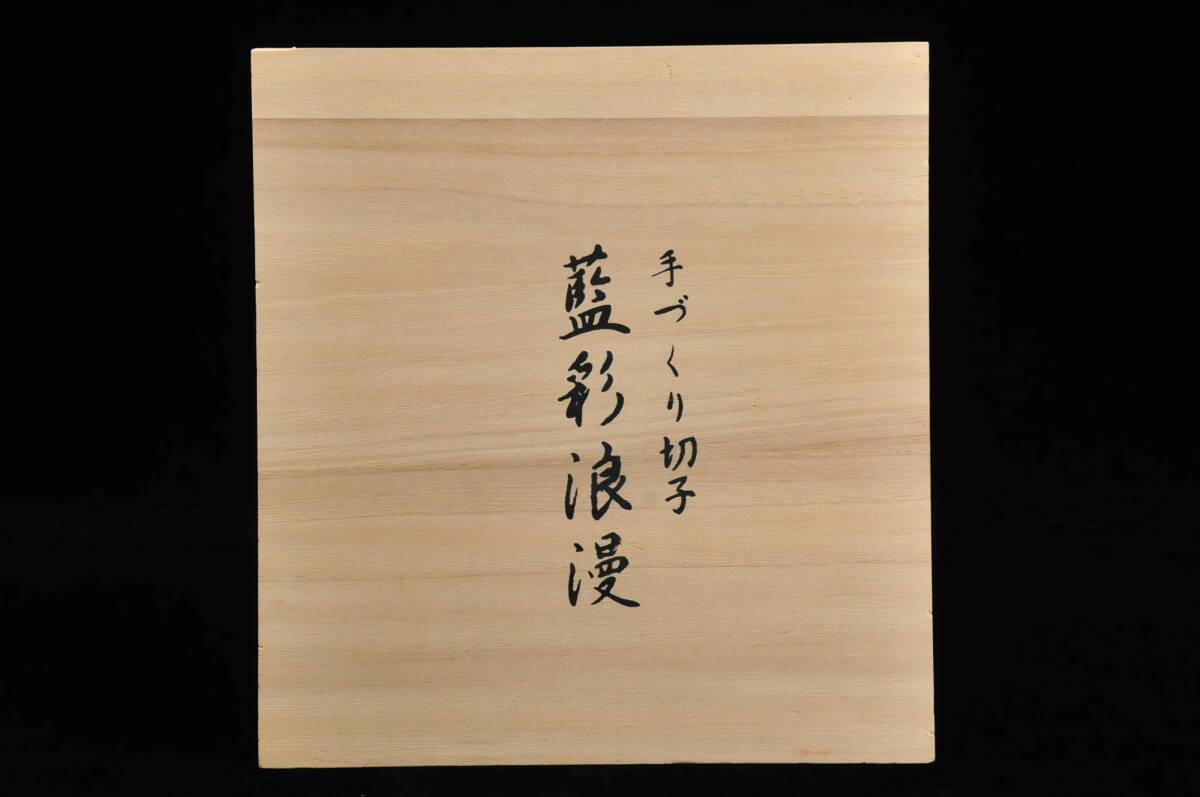 手づくり切子
藍彩浪漫